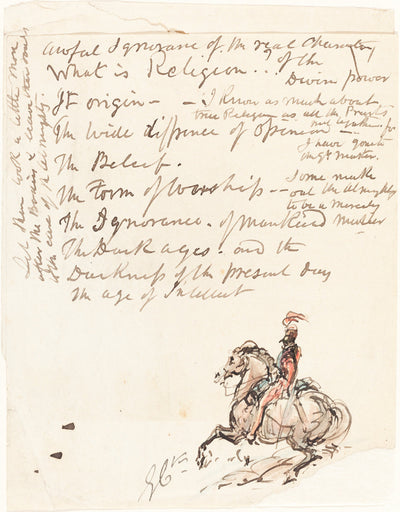 awful Ignorance of the real Character
of the
What is Religion...?
Divine power
It origin -
- I know as much about
true Religion as all the Priests
put together for
The wide diffrence of Opinion -
I have gone to
the Great Master.
The Beleif.
The Form of Worship -
- Some make
out the Almighty
to be a merciful
The Ignorance of Mankind
The Dark ages. and the
Darkness of the present Day
the age of Intellect
Let them look a little more
after the Brains &
GCk